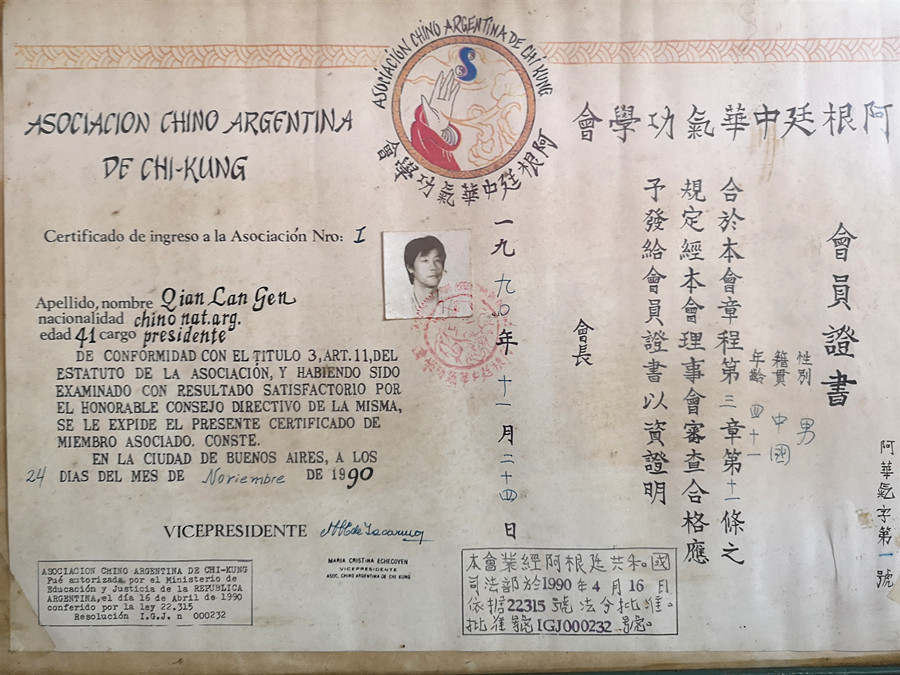 ASOCIACIÓN CHINO ARGENTINA DE CHI KUNG
阿根廷中華氣功學會
ASOCIACION CHINO ARGENTINA
DE CHI-KUNG
Certificado de ingreso a la Asociación Nro: I
Apellido, nombre Qian Lan Gen
nacionalidad chino nat.arg.
edad 41 cargo presidente
DE CONFORMIDAD CON EL TITULO 3, ART. 11, DEL
ESTATUTO DE LA ASOCIACIÓN, Y HABIENDO SIDO
EXAMINADO CON RESULTADO SATISFACTORIO POR
EL HONORABLE CONSEJO DIRECTIVO DE LA MISMA,
SE LE EXPIDE EL PRESENTE CERTIFICADO DE
MIEMBRO ASOCIADO. CONSTE.
EN LA CIUDAD DE BUENOS AIRES, A LOS
24 DIAS DEL MES DE Noviembre DE 1990
VICEPRESIDENTE
MARIA CRISTINA ECHECOVEN
VICEPRESIDENTE
ASOC. CHINO ARGENTINA DE CHI KUNG
ASOCIACION CHINO ARGENTINA DE CHI-KUNG
Fué autorizada por el Ministerio de
Educación y Justicia de la REPUBLICA
ARGENTINA, el día 16 de Abril de 1990
conferido por la ley 22.315
Resolución I.G.J. n 000232
阿根廷中華氣功學會
會員證書
阿華氣字第一號
性別 男
籍貫 中國
年齡 四十一
合於本會章程第三章第十一條之
規定經本會理事會審查合格應
予發給會員證書以資證明
會長
一九九〇年十一月二十四日
本會業經阿根廷共和國
司法部於1990年4月16日
依據22315號法令批准。
批准號IGJ000232號。